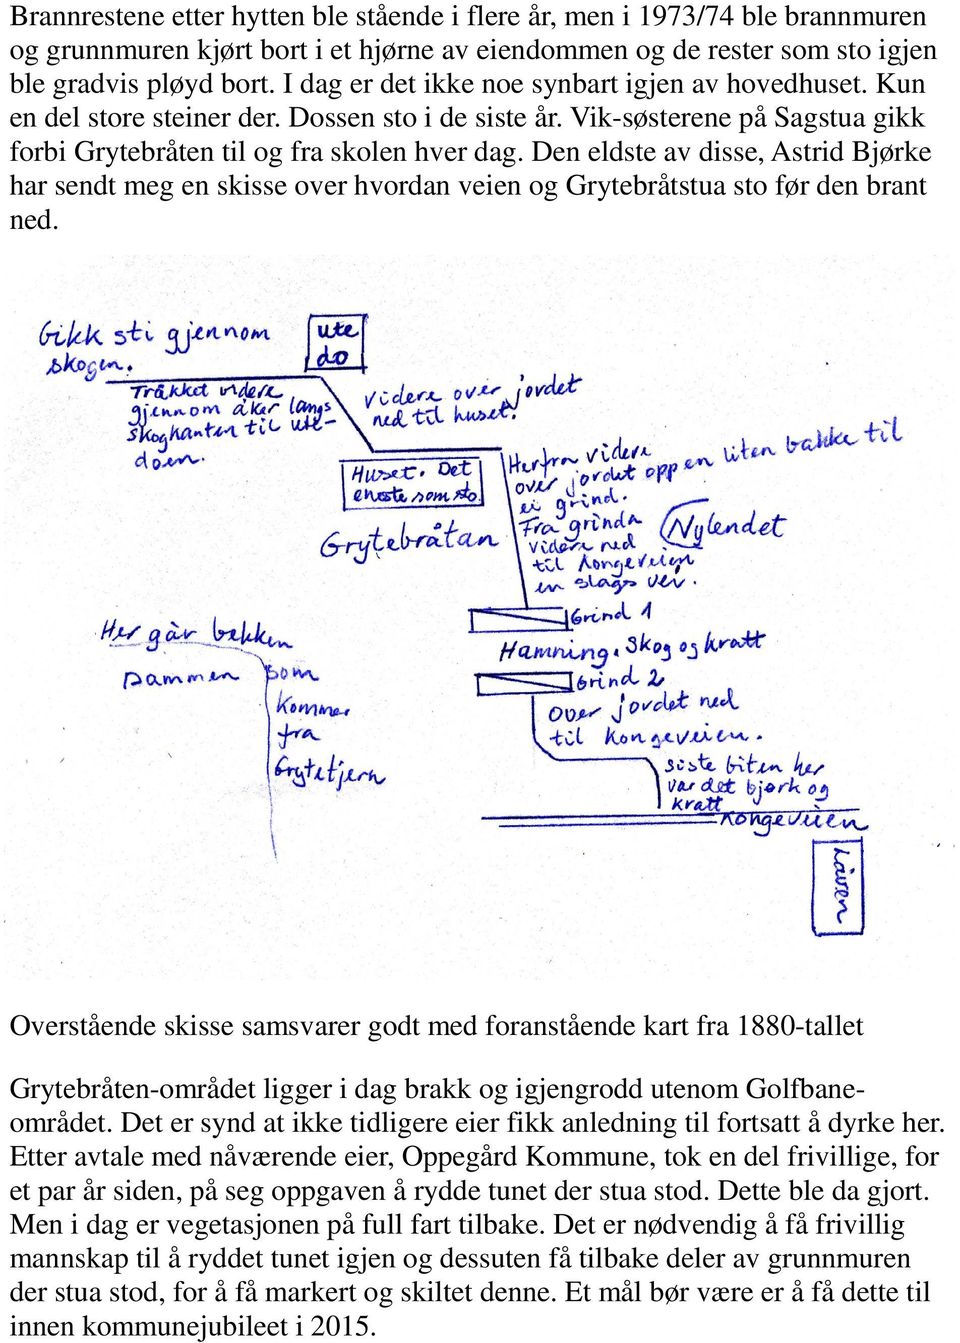 Brannrestene etter hytten ble stående i flere år, men i 1973/74 ble brannmuren
og grunnmuren kjørt bort i et hjørne av eiendommen og de rester som sto igjen
ble gradvis pløyd bort. I dag er det ikke noe synbart igjen av hovedhuset. Kun
en del store steiner der. Dossen sto i de siste år. Vik-søsterene på Sagstua gikk
forbi Grytebråten til og fra skolen hver dag. Den eldste av disse, Astrid Bjørke
har sendt meg en skisse over hvordan veien og Grytebråtstua sto før den brant
ned.
Gikk sti gjennom
skogen.
ute
do
Tråkket videre
gjennom åker langs
skogkanten til ute-
doen.
Videre over jordet
ned til huset.
Huset. Det
eneste som sto.
Herfra videre
over jordet opp en liten bakke til
ei grind.
Fra grinda
videre ned
til kongeveien
en slags vei.
Grytebråtan
Nylendet
Grind 1
Hamning. Skog og kratt
Grind 2
Her går bekken
Dammen som
kommer
fra
Grytetjern
over jordet ned
til kongeveien.
siste biten her
var det bjørk og
kratt
Kongeveien
Låven
Overstående skisse samsvarer godt med foranstående kart fra 1880-tallet
Grytebråten-området ligger i dag brakk og igjengrodd utenom Golfbane-
området. Det er synd at ikke tidligere eier fikk anledning til fortsatt å dyrke her.
Etter avtale med nåværende eier, Oppegård Kommune, tok en del frivillige, for
et par år siden, på seg oppgaven å rydde tunet der stua stod. Dette ble da gjort.
Men i dag er vegetasjonen på full fart tilbake. Det er nødvendig å få frivillig
mannskap til å ryddet tunet igjen og dessuten få tilbake deler av grunnmuren
der stua stod, for å få markert og skiltet denne. Et mål bør være er å få dette til
innen kommunejubileet i 2015.